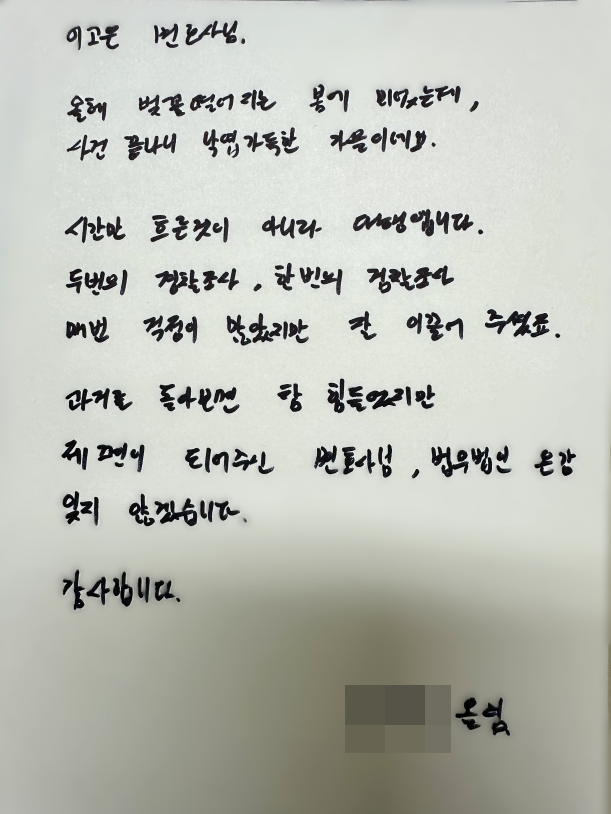 이고은 변호사님.
올해 벚꽃떨어지는 봄에 뵈었는데,
사건 끝나니 낙엽가득한 가을이네요.
시간만 흐른것이 아니라
두번의 경찰조사, 한번의 검찰조사
매번 걱정이 많았지만 잘 이끌어 주셨죠.
과거를 돌아보면 참 힘들었지만
제 편이 되어주신 변호사님, 법무법인 온강
잊지 않겠습니다.
감사합니다.
올림